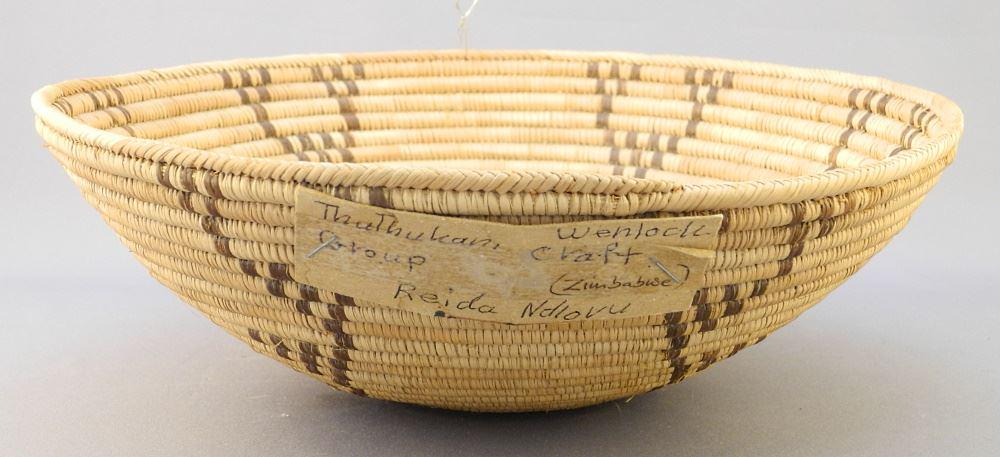 Thuthukani Wenlock
Group Craft
(Zimbabwe)
Reida Ndlovu